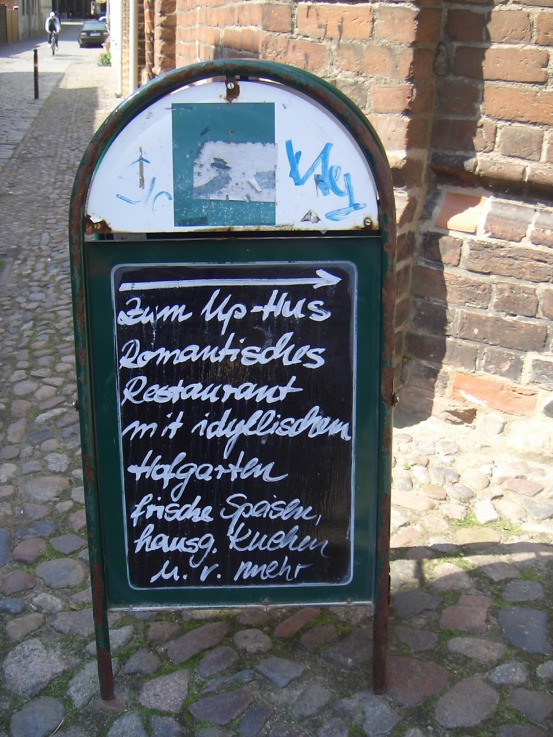 Zum Up-Hus
Romantisches
Restaurant
mit idyllischem
Hofgarten
frische Speisen,
hausg. Kuchen
u. v. mehr